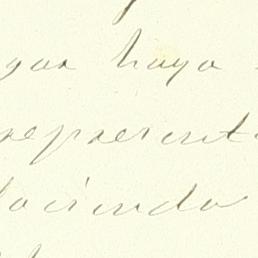 que haya
represent
aciendo